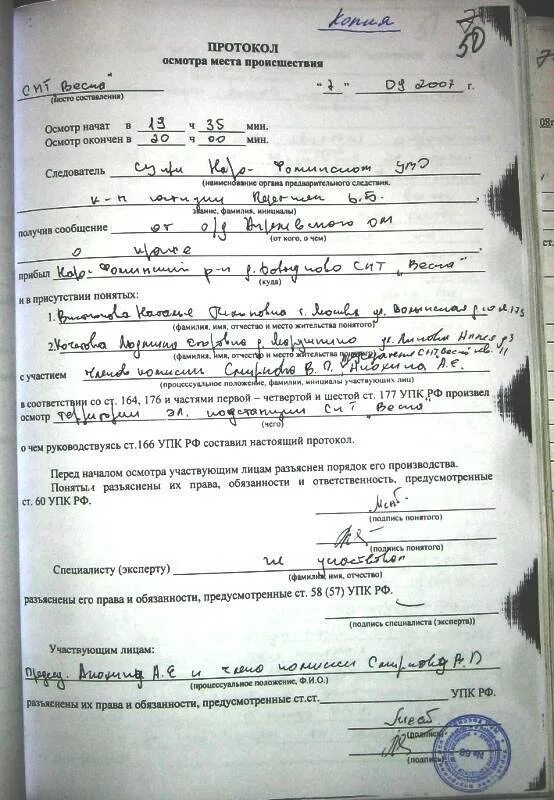 Копия
7
50
ПРОТОКОЛ
осмотра места происшествия
СНТ "Весна"
(место составления)
"7" 09 2007 г.
Осмотр начат в 19 ч 35 мин.
Осмотр окончен в 20 ч 00 мин.
Следователь СУ при Наро-Фоминском УВД
(наименование органа предварительного следствия,
к-н юстиции
звание, фамилия, инициалы)
получив сообщение от о/д ОМ
(от кого, о чем)
о краже
прибыл Наро-Фоминский р-н д. СНТ "Весна"
(куда)
и в присутствии понятых:
1. Наталья г. Москва ул.
(фамилия, имя, отчество и место жительства понятого)
2. Людмила Егоровна д. ул.
(фамилия, имя, отчество и место жительства понятого)
с участием членов комиссии Смирнова В. П. Анохина А. Е.
(процессуальное положение, фамилии, инициалы участвующих лиц)
в соответствии со ст. 164, 176 и частями первой – четвертой и шестой ст. 177 УПК РФ произвел
осмотр территории эл. подстанции СНТ "Весна"
(чего)
о чем руководствуясь ст.166 УПК РФ составил настоящий протокол.
Перед началом осмотра участвующим лицам разъяснен порядок его производства.
Понятым разъяснены их права, обязанности и ответственность, предусмотренные
ст. 60 УПК РФ.
(подпись понятого)
(подпись понятого)
Специалисту (эксперту) не участвовал
(фамилия, имя, отчество)
разъяснены его права и обязанности, предусмотренные ст. 58 (57) УПК РФ.
(подпись специалиста (эксперта))
Участвующим лицам:
Председ. Анохину А.Е и члено комиссии Смирнову В. П
(процессуальное положение, Ф.И.О.)
разъяснены их права и обязанности, предусмотренные ст.ст. УПК РФ.
(подпись)
(подпись)